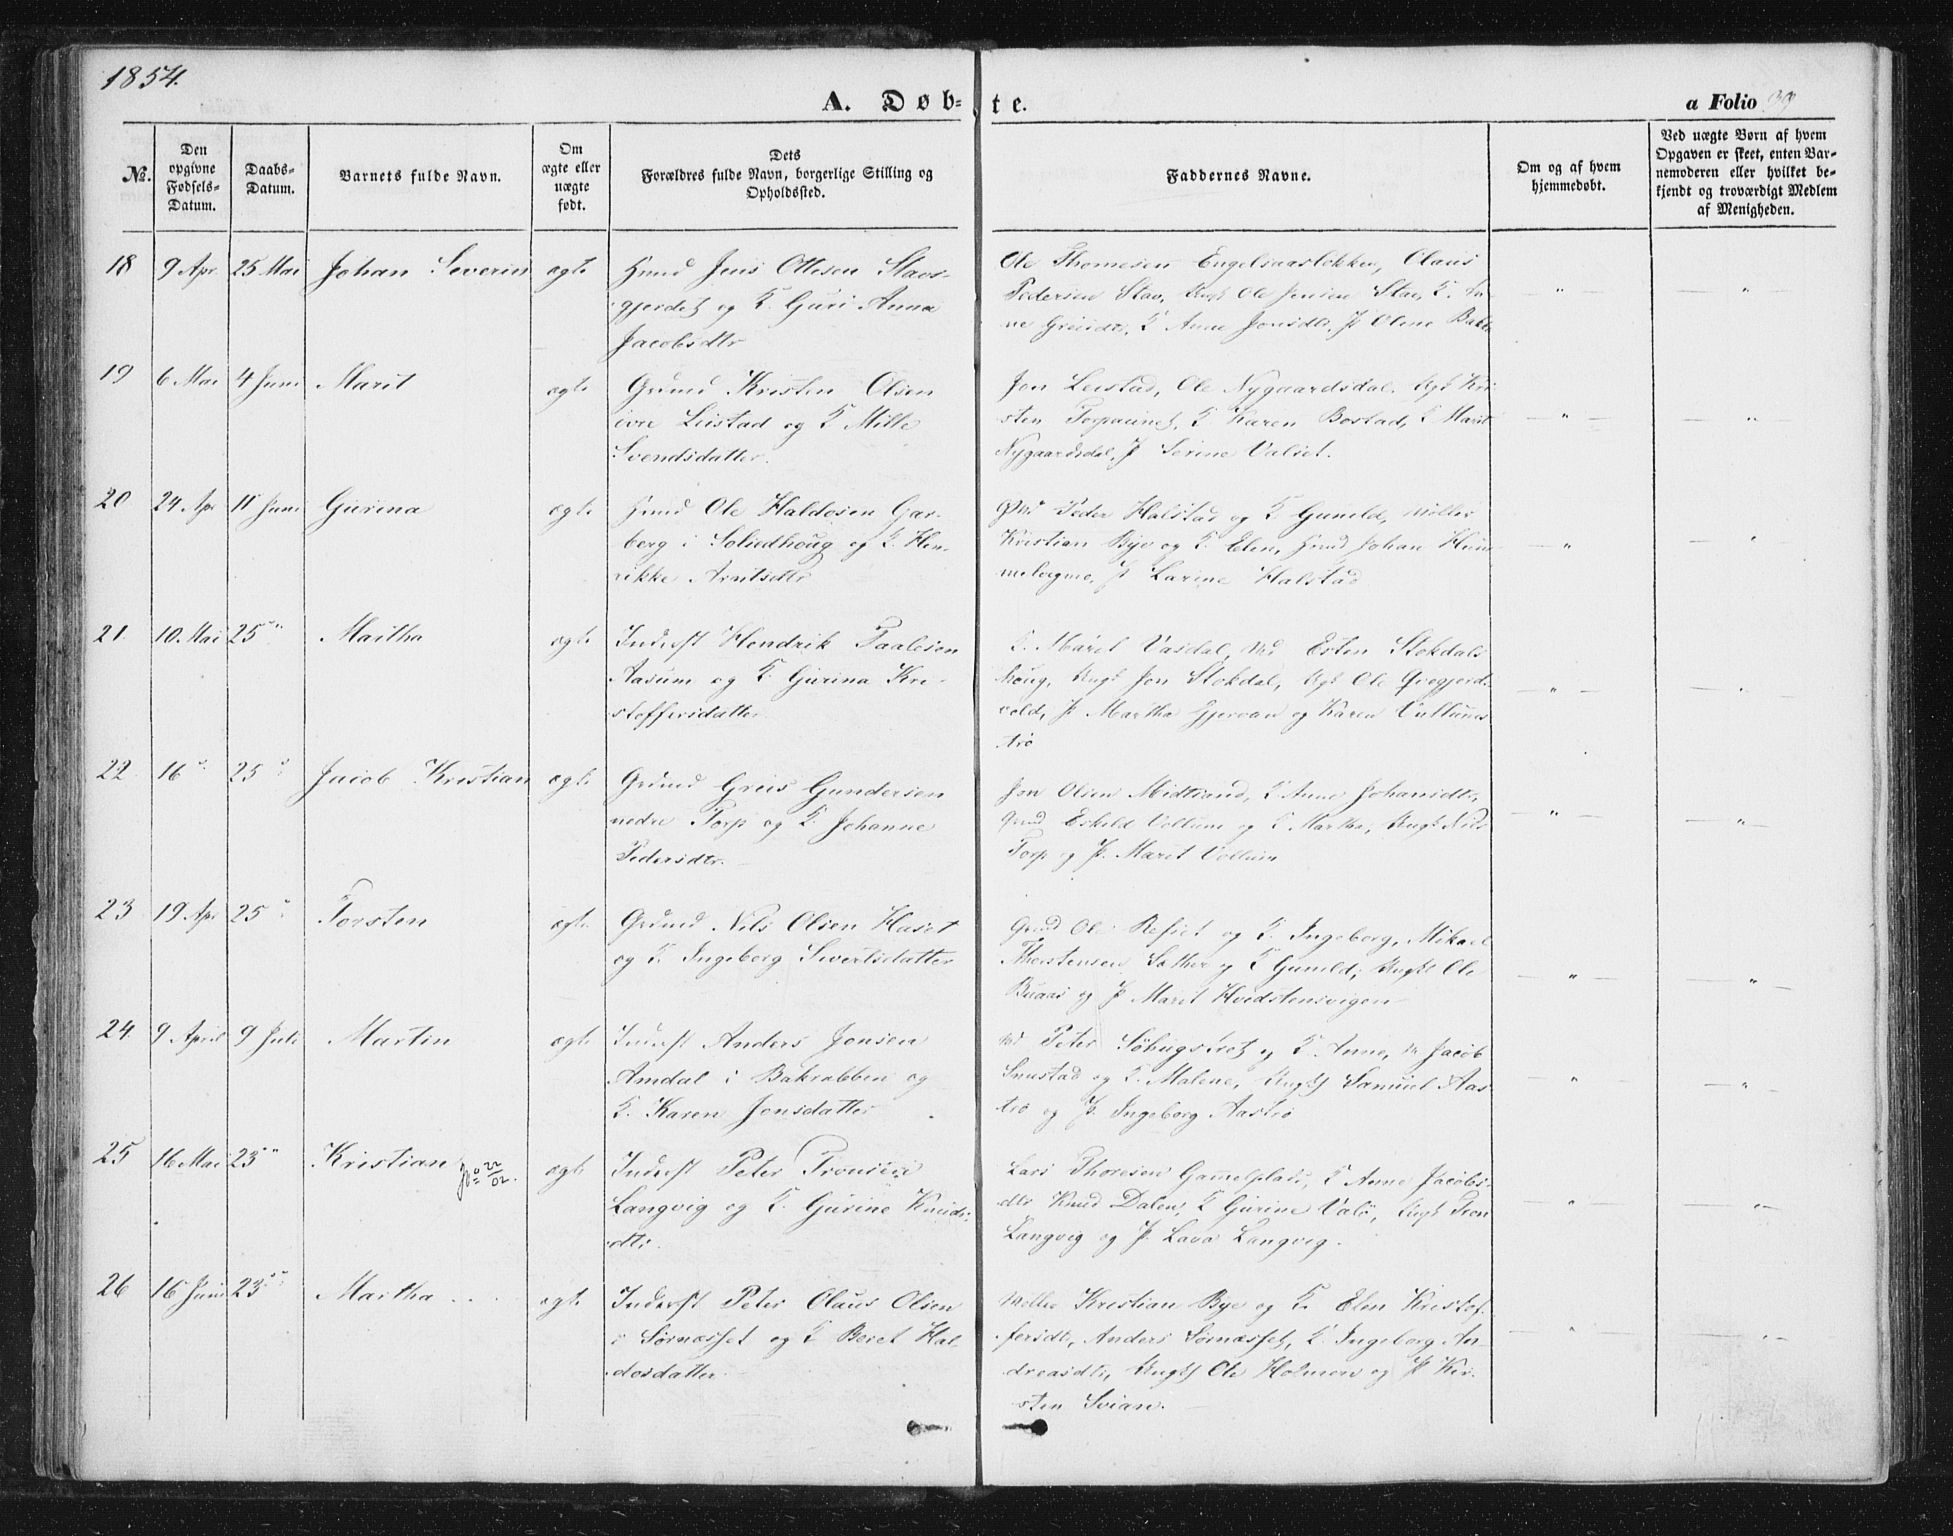 1854.
A. Døb-te.
a Folio 39
No.
Den opgivne Fødsels-Datum.
Daabs-Datum.
Barnets fulde Navn.
Om ægte eller uægte født.
Dets Forældres fulde Navn, borgerlige Stilling og Opholdssted.
Faddernes Navne.
Om og af hvem hjemmedøbt.
Ved uægte Børn af hvem Opgaven er skeet, enten Barnemoderen eller hvilket bekjendt og troværdigt Medlem af Menigheden.
18 9 Apr. 25 Mai Johan Severin ægte
Jens Ottesen Stavs-
gjerdet og K. Guri Anna
Jacobsdtr
Ole Thomesen Engelsaasløkken, Claus
Pedersen Stav, Ungk Ole Jensen Stav, K. An-
ne Greisdtr, K Anne Jonsdtr, P Oline Bakk
19 6 Mai 4 Juni Marit ægte
Grmd Kristen Olsen
øvre Leistad og K Mille
Svendsdatter.
Jon Leistad, Ole Nygaardsdal. Ungk Kri-
sten Torpaunet, K Karen Bostad, K Marit
Nygaardsdal, P Serine Valset.
20 24 Apr 11 Juni Gurina ægte
Ole Haldosen Gar-
berg i Soliedhoug og K. Hen-
rikke Arntsdtr
Peder Halstad og K Gunild, Møller
Kristian Bye og K. Elen, Johan Him-
melvegmo, P Larine Halstad
21. 10. Mai 25 " Martha ægte
Inderst Hendrik Paalesen
Aasum og K Gurina Kri-
stoffersdatter
K. Marit Vasdal, Esten Stokdals
houg, Ungk Jon Stokdal, Ungk Ole
vold, P Martha Gjervan og Karen Vullums
trø
22 16 " 25 " Jacob Kristian ægte
Grmd Greis Gundersen
nedre Torp og K. Johanne
Pedersdtr.
Jon Olsen Midtsand, K Anne Johansdtr,
Grmd Eskild Vollum og K Martha, Ungk Nils
Torp og P. Marit Vollum
23 19 Apr 25 " Torsten ægte
Grmd Nils Olsen Huset
og K. Ingeborg Sivertsdatter
Grmd Ole Refset og K. Ingeborg, Mikael
Thorstensen Sæther og K Gunild, Ungk Ole
Buaas og P Marit Hvidstensvigen
24. 9 April 9 Juli Martin ægte
Inderst Anders Jonsen
Amdal i Bakrabben og
K. Karen Jonsdatter
Peter og K. Anne, Jacob
Snustad og K. Malene, Ungk Samuel Aas-
trø og P. Ingeborg Aastrø
25 16 Mai 23 " Kristian 22/02. ægte
Inderst Peter Tronsen
Langvig og K. Gurine Knuds-
dtr.
Lars Thoresen Gammelplads, K Anne Jacobs-
dtr Knud Dalen, K Gurine Valø, Ungk Tron
Langvig og P. Lava Langvig.
26 16 Juni 23 " Martha ægte
Inderst Peter Olaus Olsen
i Sørnæsset og K Beret Hal-
dosdatter
Møller Kristian Bye og K. Elen Kristof-
fersdt, Anders Sørnæsset, K. Ingeborg An-
dreasdtr, Ungk Ole Holmen og P Kir-
sten Svian.